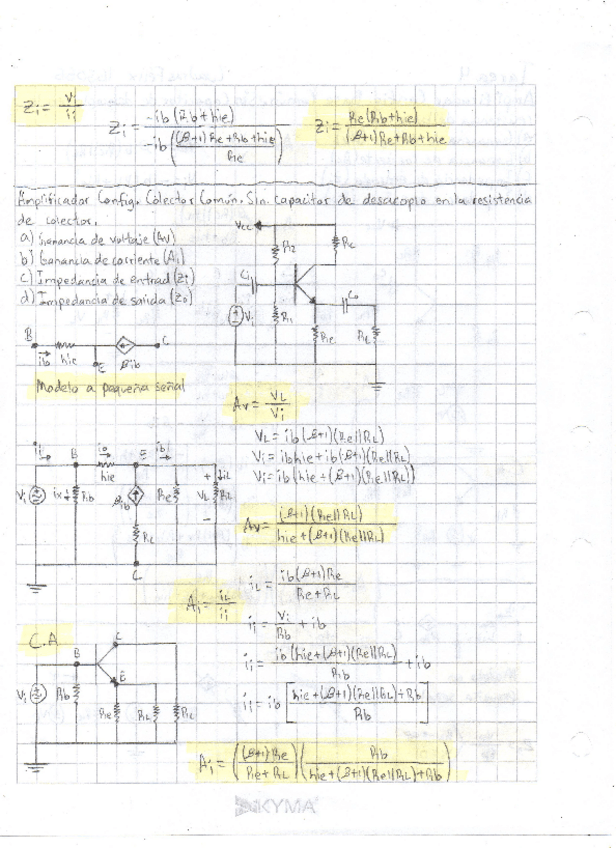 Zi = Vi/ii
Zi = -ib(Rb+hie) / -ib(((β+1)Re+Rb+hie)/Re)
Zi = Re(Rb+hie) / (β+1)Re+Rb+hie
Amplificador Config. Colector Común. Sin capacitor de desacoplo en la resistencia
de colector.
a) Ganancia de voltaje (Av)
b) Ganancia de corriente (Ai)
c) Impedancia de entrad (Zi)
d) Impedancia de salida (Zo)
Vcc
R2
Rc
Ci
Co
Vi
R1
Re
RL
B
C
ib
hie
E
βib
Modelo a pequeña señal
Av = VL/Vi
VL = ib(β+1)(Re||RL)
Vi = ibhie+ib(β+1)(Re||RL)
Vi = ib(hie+(β+1)(Re||RL))
ii
B
E
hie
Vi
ix
Rb
βib
Re
iL
+
VL
-
RL
Rc
C
Av = (β+1)(Re||RL) / hie+(β+1)(Re||RL)
Ai = iL/ii
iL = ib(β+1)Re / Re+RL
ii = Vi/Rb + ib
ii = ib(hie+(β+1)(Re||RL)) / Rb + ib
ii = ib [hie+(β+1)(Re||RL)+Rb / Rb]
C.A
C
B
E
Vi
Rb
Re
RL
Ai = ((β+1)Re / Re+RL) (Rb / hie+(β+1)(Re||RL)+Rb)
KYMA